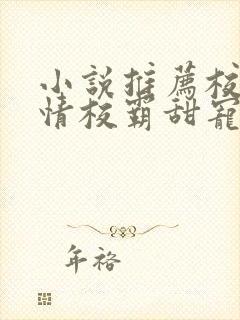 小説推薦校
情校霸甜寵
年裕